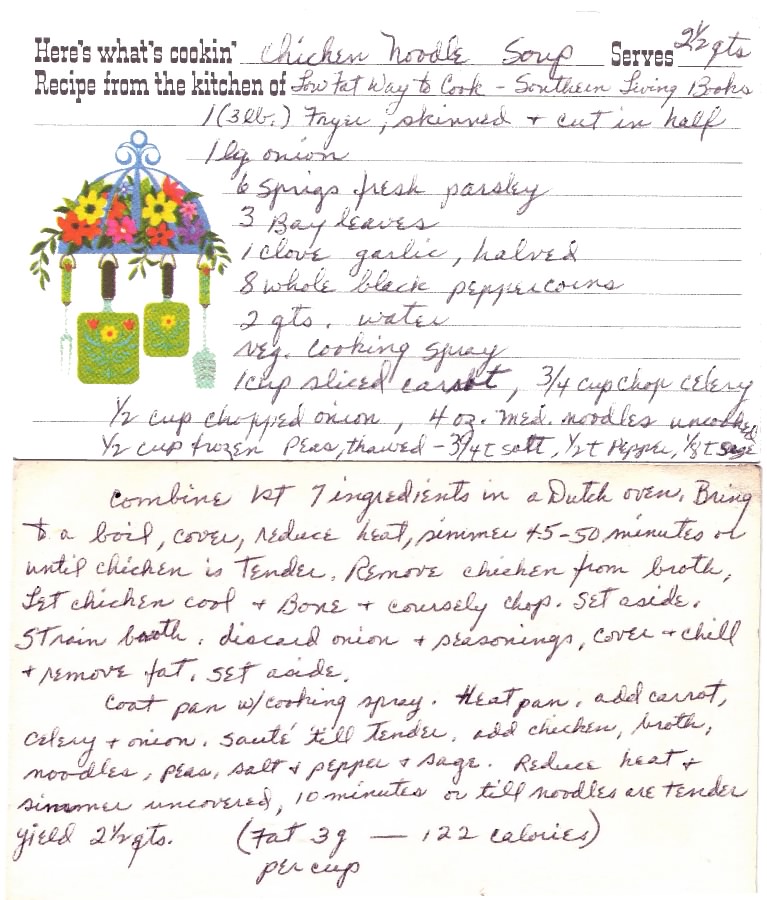 Here's what's cookin' Chicken Noodle Soup Serves 2½ qts
Recipe from the kitchen of Low Fat Way to Cook - Southern Living Books
1 (3 lb.) Fryer, skinned + cut in half
1 lg onion
6 sprigs fresh parsley
3 Bay leaves
1 clove garlic, halved
8 whole black peppercorns
2 qts. water
Veg. Cooking Spray
1 cup sliced carrot, 3/4 cup chop celery
½ cup chopped onion, 4 oz. med. noodles uncooked
½ cup frozen Peas, thawed - 3/4 t salt, ½ t Pepper, ⅛ t sage
Combine 1st 7 ingredients in a Dutch oven. Bring
to a boil, cover, reduce heat, simmer 45-50 minutes or
until chicken is Tender. Remove chicken from broth,
Let chicken cool + Bone + coursely chop. Set aside.
Strain broth. discard onion + seasonings, cover + chill
+ remove fat. Set aside.
Coat pan w/cooking spray. Heat pan. add carrot,
Celery + onion. Sauté till Tender. add chicken, broth,
noodles, peas, salt + pepper + sage. Reduce heat +
simmer uncovered, 10 minutes or till noodles are tender
yield 2½ qts. (Fat 3g — 122 calories)
per cup